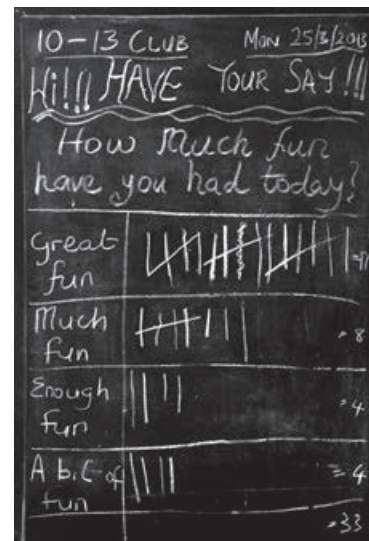 10-13 CLUB MON 25/3/2013
Hi!!!! HAVE YOUR SAY!!!
How Much fun
have you had today?
Great fun =17
Much fun = 8
Enough fun = 4
A bit of fun = 4
=33